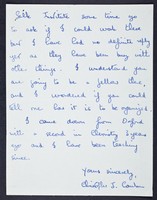 Institute some time ago
to ask if I could work there
but I have had no definite reply
yet as they have been busy with
other things. I understand you
are going to be a fellow there
and I wondered if you could
tell me how it is to be organised
I came down from Oxford
with a second in Chemistry 2 years
ago and I have been teaching
since.
Yours sincerely,
Christopher J.